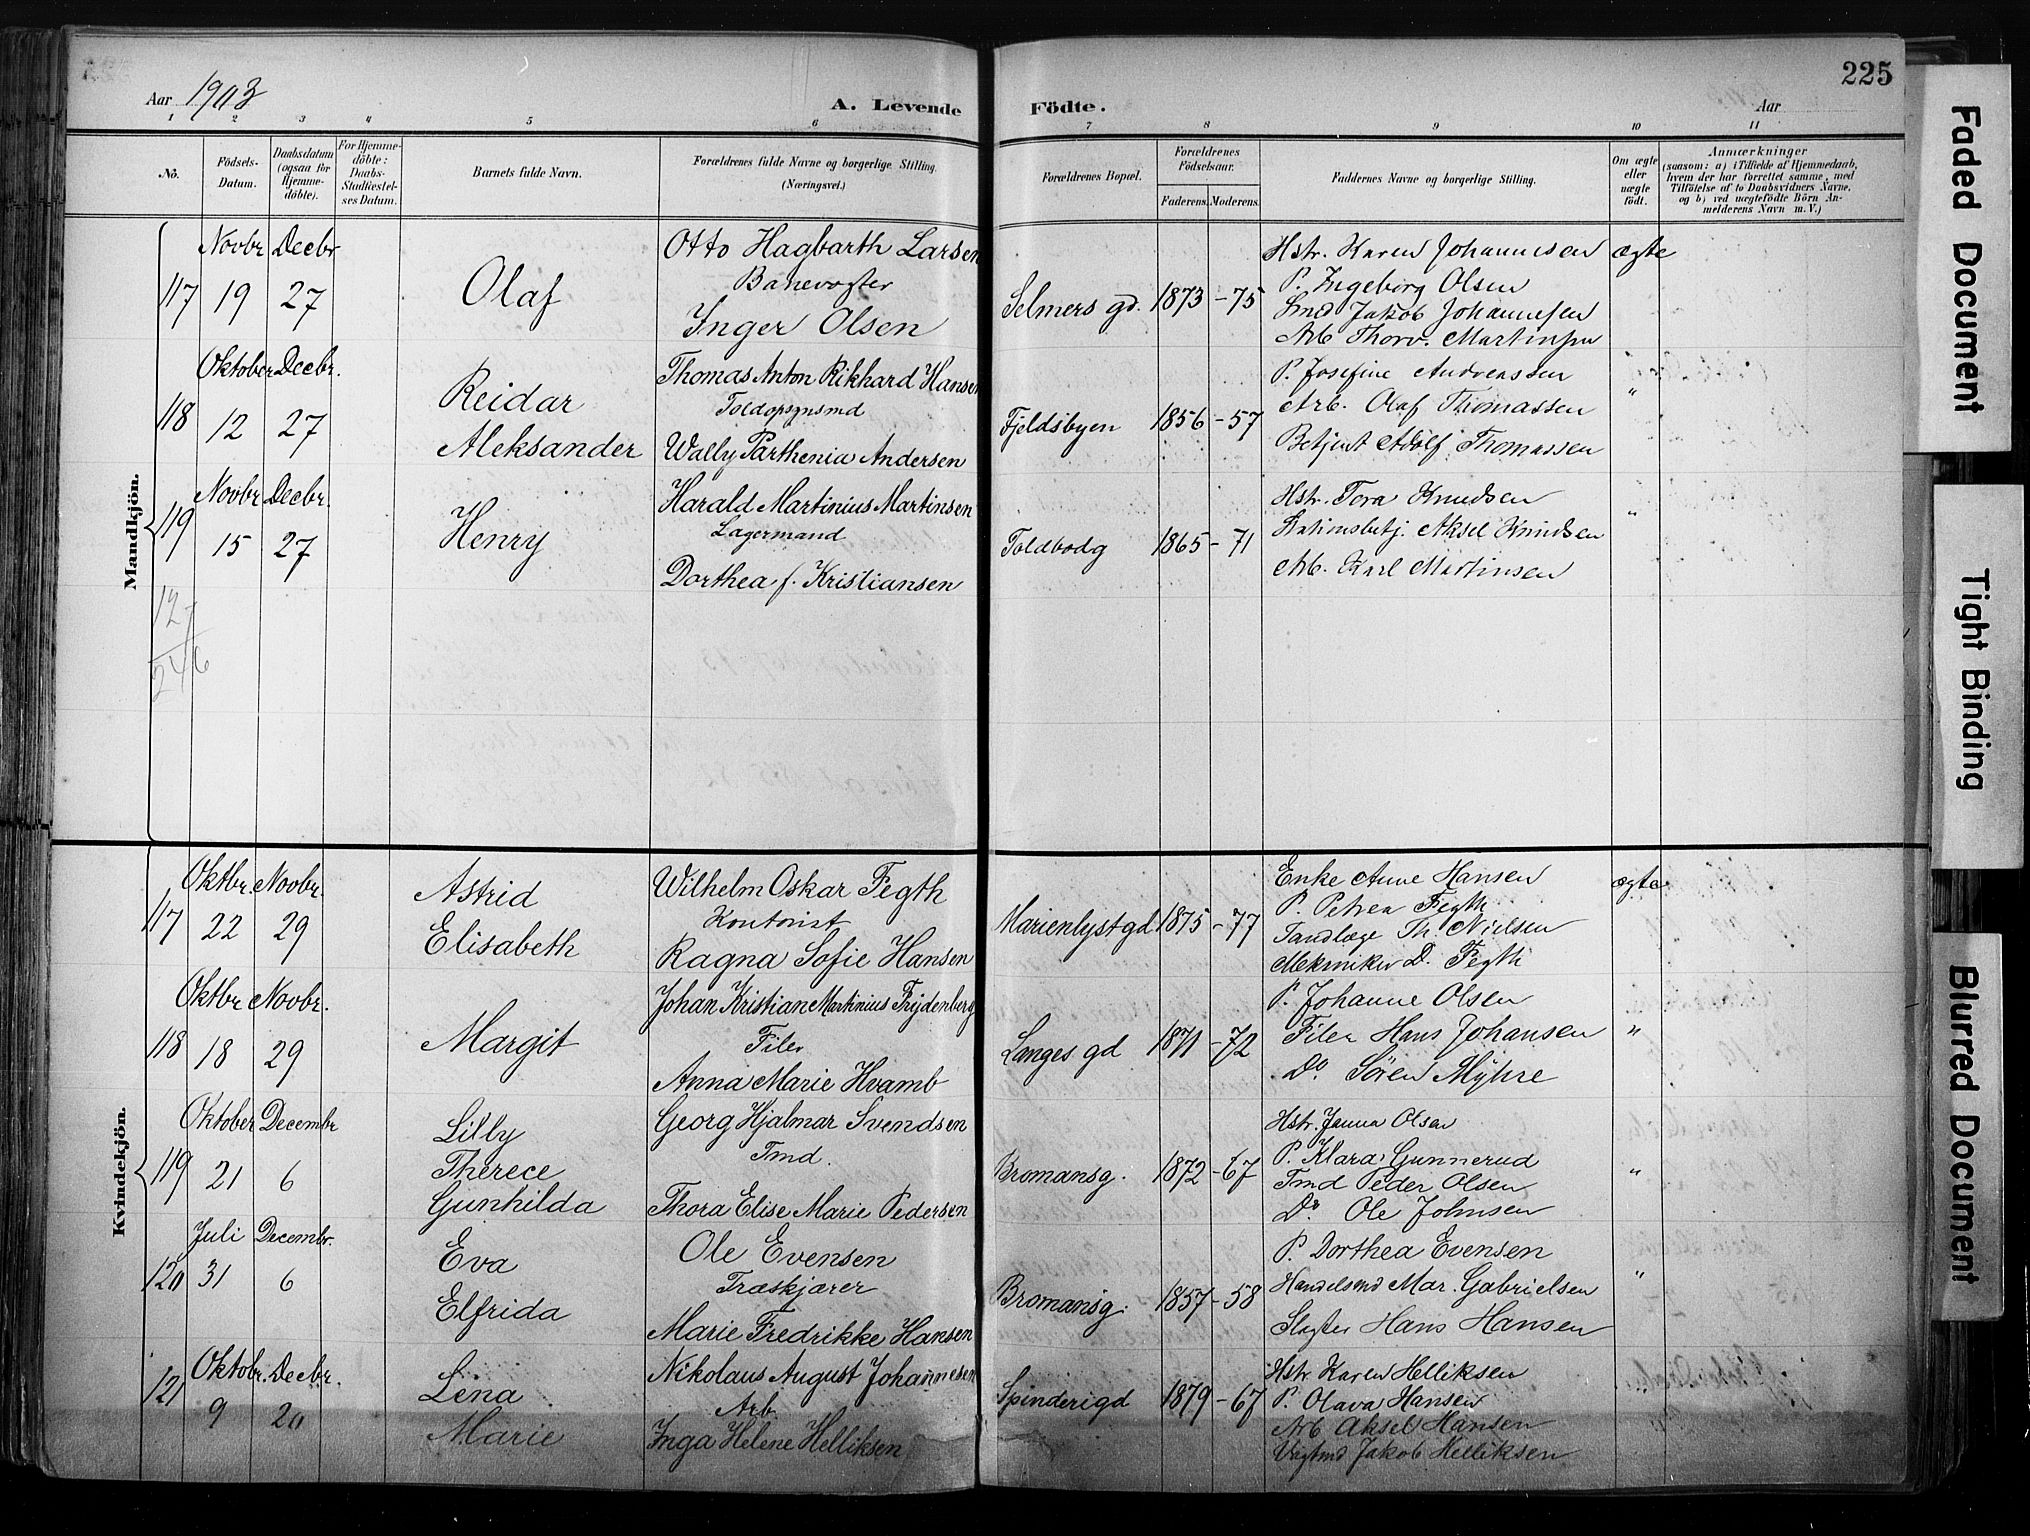 225
Aar 1903
A. Levende Födte.
Aar
1 2 3 4 5 6 7 8 9 10 11
No.
Födsels-Datum.
Daabsdatum (ogsaa for Hjemmedöbte).
For Hjemmedöbte: Daabs-Stadfæstelses Datum.
Barnets fulde Navn.
Forældrenes fulde Navne og borgerlige Stilling. (Næringsvei.)
Forældrenes Bopæl.
Forældrenes Födselsaar.
Faderens. Moderens.
Faddernes Navne og borgerlige Stilling.
Om ægte eller uægte födt.
Anmærkninger
(saasom: a) i Tilfælde af Hjemmedaab,
hvem der har forrettet samme, med
Tilföielse af to Daabsvidners Navne,
og b) ved uægtefödte Börn Anmelderens Navn m. V.)
Mandkjön.
117 Novbr 19 Decbr 27 Olaf
Otto Hagbarth Larsen
Banevogter
Inger Olsen
Selmers gd. 1873 - 75
Hstr. Karen Johannesen
P. Ingeborg Olsen
Smd Jakob Johannesen
Arb Thorv. Martinsen
ægte
118 Oktober 12 Decbr. 27 Reidar
Aleksander
Thomas Anton Rikhard Hansen
Toldopsynsmd
Wally Parthenia Andersen
Fjeldsbyen 1856 - 57
P. Josefine Andreassen
Arb. Olaf Thomassen
Betjent Adolf Thomassen
"
119 Novbr 15 Decbr. 27 Henry
Harald Martinius Martinsen
Lagermand
Dorthea f. Kristiansen
Toldbodg 1865 - 71
Hstr. Tora Knudsen
Stationsbetj. Aksel Knudsen
Arb. Karl Martinsen
"
127
246
Kvindekjön.
117 Oktbr. 22 Novbr. 29 Astrid
Elisabeth
Wilhelm Oskar Fegth
Kontorist
Ragna Sofie Hansen
Marienlystgd 1875 - 77
Enke Anne Hansen
P. Petrea Fegth
Tandlæge Th. Nielsen
Mekaniker D. Fegth
ægte
118 Oktbr 18 Novbr. 29 Margit
Johan Kristian Martinius Frydenberg
Filer
Anna Marie Hvamb
Langes gd 1871 - 72
P. Johanne Olsen
Filer Hans Johansen
Do. Sören Myhre
"
119 Oktober 21 Decembr 6 Lilly
Therece
Gunhilda
Georg Hjalmar Svendsen
Tmd.
Thora Elise Marie Pedersen
Bromansg. 1872 - 67
Hstr. Janna Olsen
P. Klara Gunnerud
Tmd Peder Olsen
Do Ole Johnsen
"
120 Juli 31 Decembr. 6 Eva
Elfrida
Ole Evensen
Træskjærer
Marie Fredrikke Hansen
Bromansg. 1857 - 58
P. Dorthea Evensen
Handelsmd Mar. Gabrielsen
Slagter Hans Hansen
"
121 Oktobr. 9 Decbr. 20 Lena
Marie
Nikolaus August Johannesen
Arb
Inga Helene Helliksen
Spinderigd 1879 - 67
Hstr Karen Helliksen
P. Olava Hansen
Arb Aksel Hansen
Vagtmd Jakob Helliksen
"
Faded Document
Tight Binding
Blurred Document